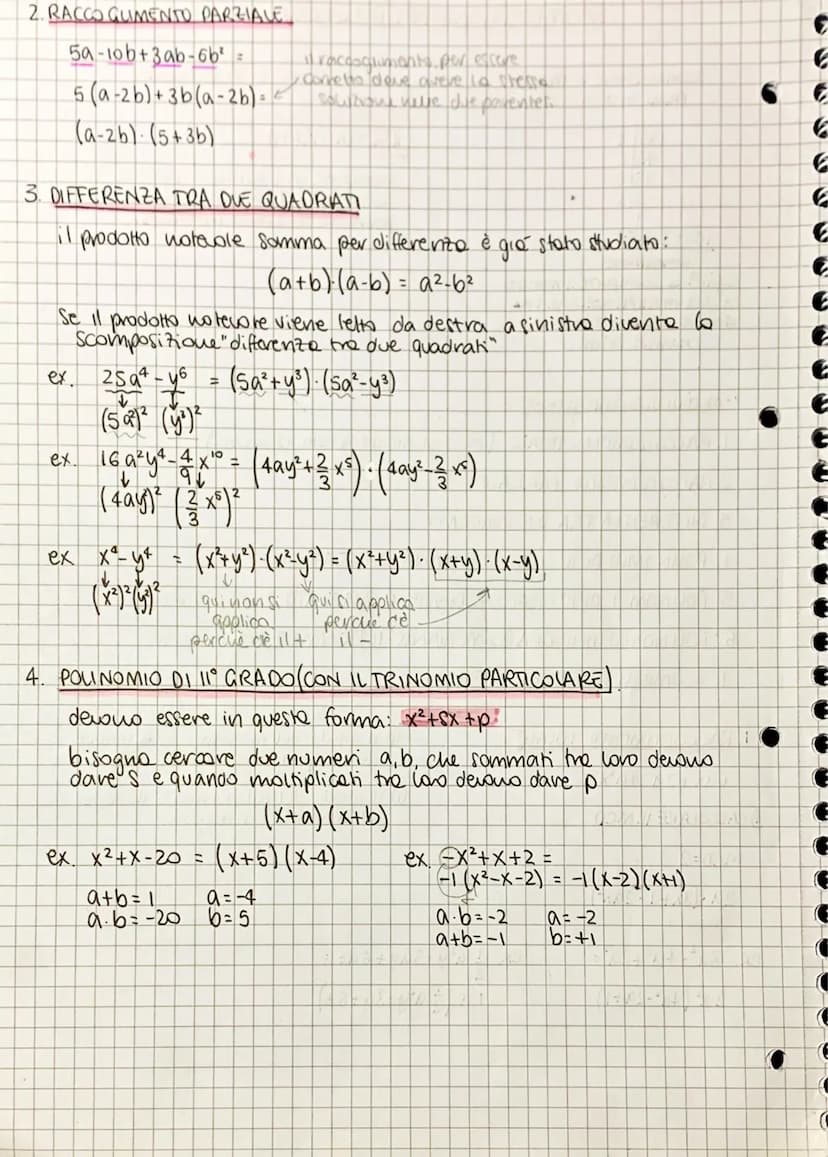 2. RACCOGLIMENTO PARZIALE
5a-10b+3ab-6b² =
il raccoglimento, per essere
corretto deve avere la stessa
soluzione nelle due parentesi
5(a-2b)+3b(a-2b)=
(a-2b)·(5+3b)
3. DIFFERENZA TRA DUE QUADRATI
il prodotto notevole somma per differenza è già stato studiato:
(a+b)·(a-b) = a²-b²
Se il prodotto notevole viene letto da destra a sinistra diventa la
scomposizione "differenza tra due quadrati"
ex. 25a⁴ - y⁶ = (5a²+y³)·(5a²-y³)
(5a²)² (y³)²
ex. 16a²y⁴ - 4/9 x¹⁰ = (4ay²+2/3 x⁵)·(4ay²-2/3 x⁵)
(4ay)² (2/3 x⁵)²
ex x⁴-y⁴ = (x²+y²)·(x²-y²) = (x²+y²)·(x+y)·(x-y)
(x²)²(y²)²
qui non si applica perchè c'è il +
qui si applica perchè c'è il -
4. POLINOMIO DI II° GRADO (CON IL TRINOMIO PARTICOLARE)
devono essere in questa forma: x²+sx+p
bisogna cercare due numeri a,b, che sommati tra loro devono
dare s e quando moltiplicati tra loro devono dare p
(x+a)(x+b)
ex. x²+x-20 = (x+5)(x-4)
a+b=1 a=-4
a·b=-20 b=5
ex. -x²+x+2 =
-1(x²-x-2) = -1(x-2)(x+1)
a·b=-2 a=-2
a+b=-1 b=+1